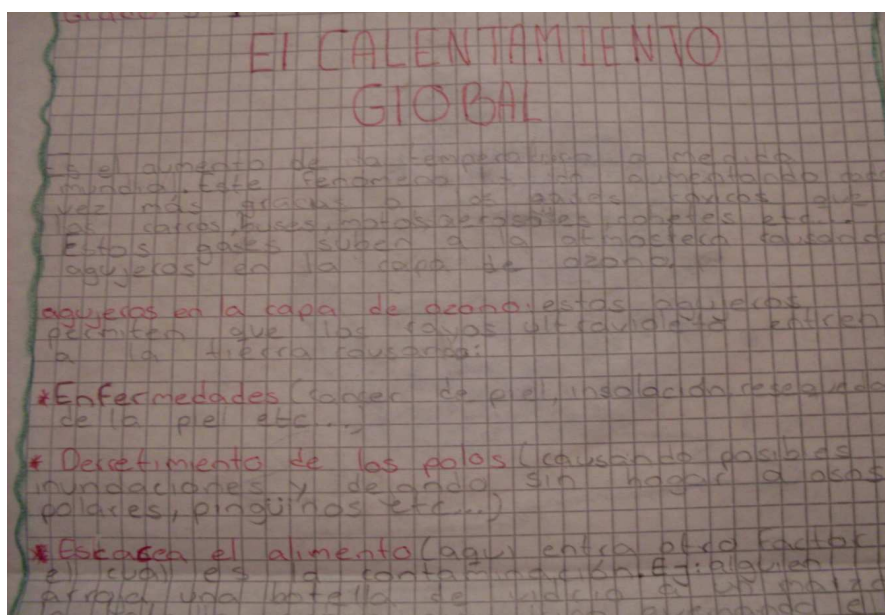 El CALENTAMIENTO
GlOBAL
Es el aumento de la temperatura a medida
mundial. Este fenomeno se ha aumentado cada
vez más gracias a los gases toxicos que
los carros, buses, motos, aerosoles, cohetes etc..
Estos gases suben a la atmosfera causando
agujeros en la capa de ozono.
agujeros en la capa de ozono: estos agujeros
permiten que los rayos ultravioleta entren
a la tierra causando:
*Enfermedades (cancer de piel, insolación, resequedad
de la piel etc...)
* Derretimiento de los polos (causando posibles
inundaciones y dejando sin hogar a osos
polares, pingüinos etc...)
*Escasea el alimento (aqui entra otro factor
el cual es la contaminación. Ej: alguien
arroja una botella de vidrio a un